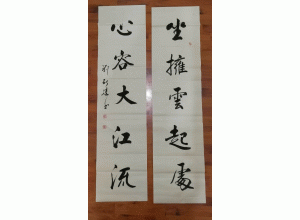 坐擁雲起處
心容大江流